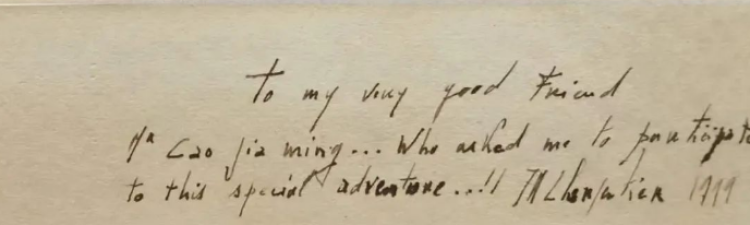 To my very good Friend
Mr Cao Jia ming... Who asked me to participate
to this special adventure..!! 1999